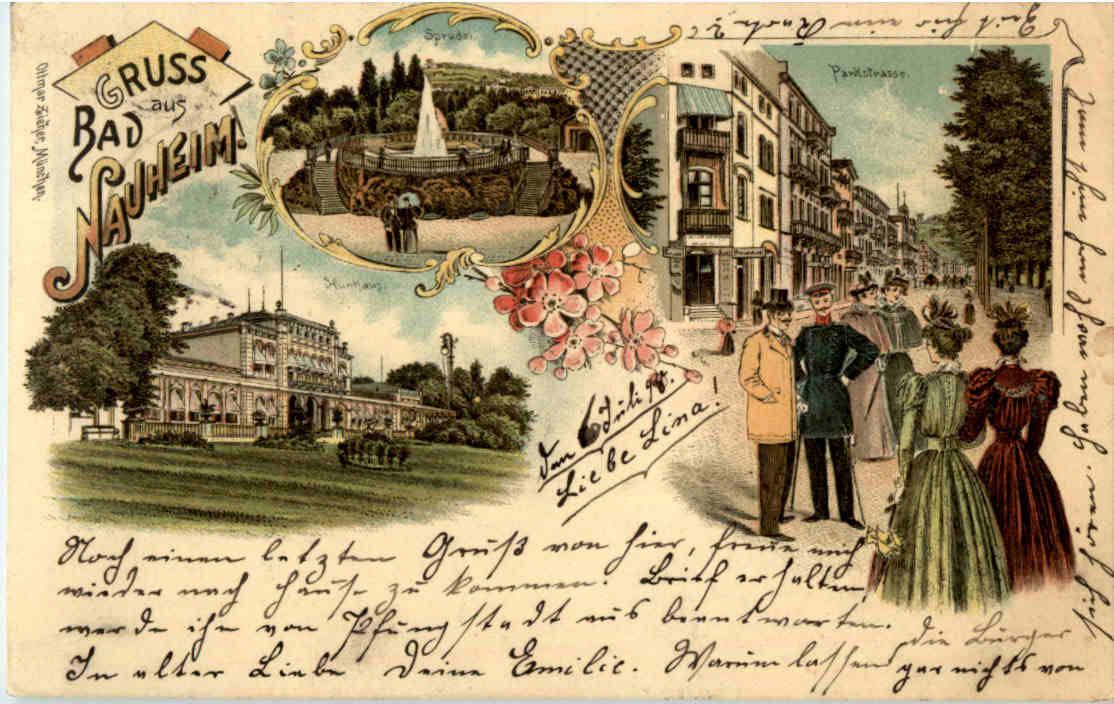 GRUSS
aus
BAD
NAUHEIM.
Ottmar Zieher, München.
Sprudel.
Kurhaus.
Parkstrasse.
den 6 Juli 98.
Liebe Lina!
Noch einen letzten Gruß von hier, freue mich
wieder nach Hause zu kommen. Brief erhalten,
werde ihn von Pfungstadt aus beantworten.
In alter Liebe Deine Emilie. Warum lassen die Bürger
gar nichts von
sich hören.